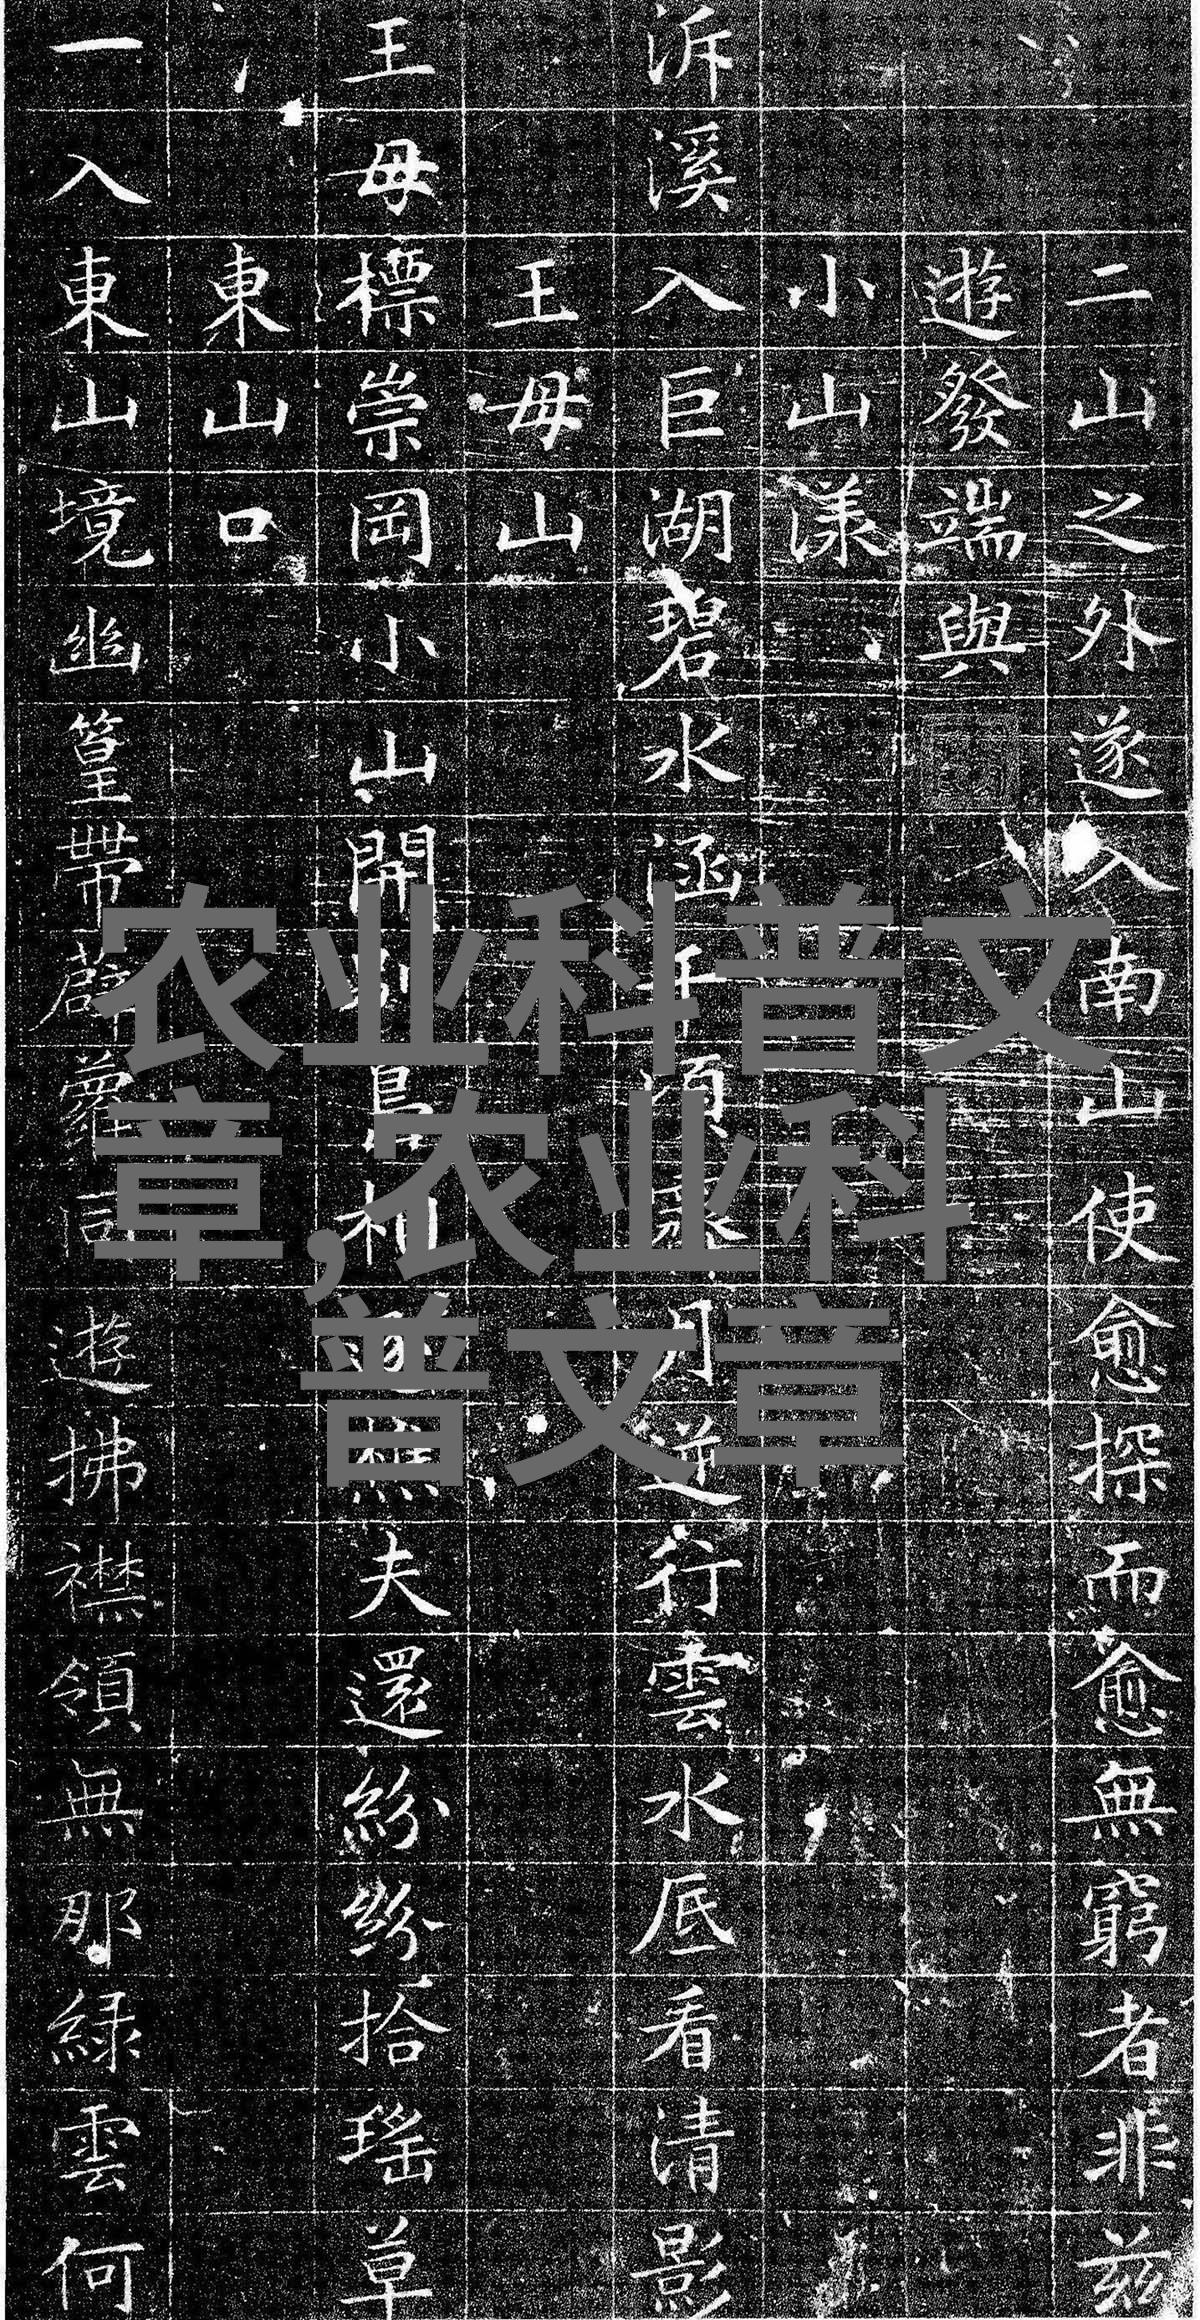 二山之外遂入南山使愈探而愈無窮者非兹
遊發端與
小山漾
泝溪入巨湖碧水涵千頃月逆行雲水底看清影
王母山
王母標崇岡小山開別島相逐樵夫還紛紛拾瑤草
東山口
一入東山境幽篁帶薜蘿同遊拂襟領無那緑雲何
农业科普文
章,农业科
普文章